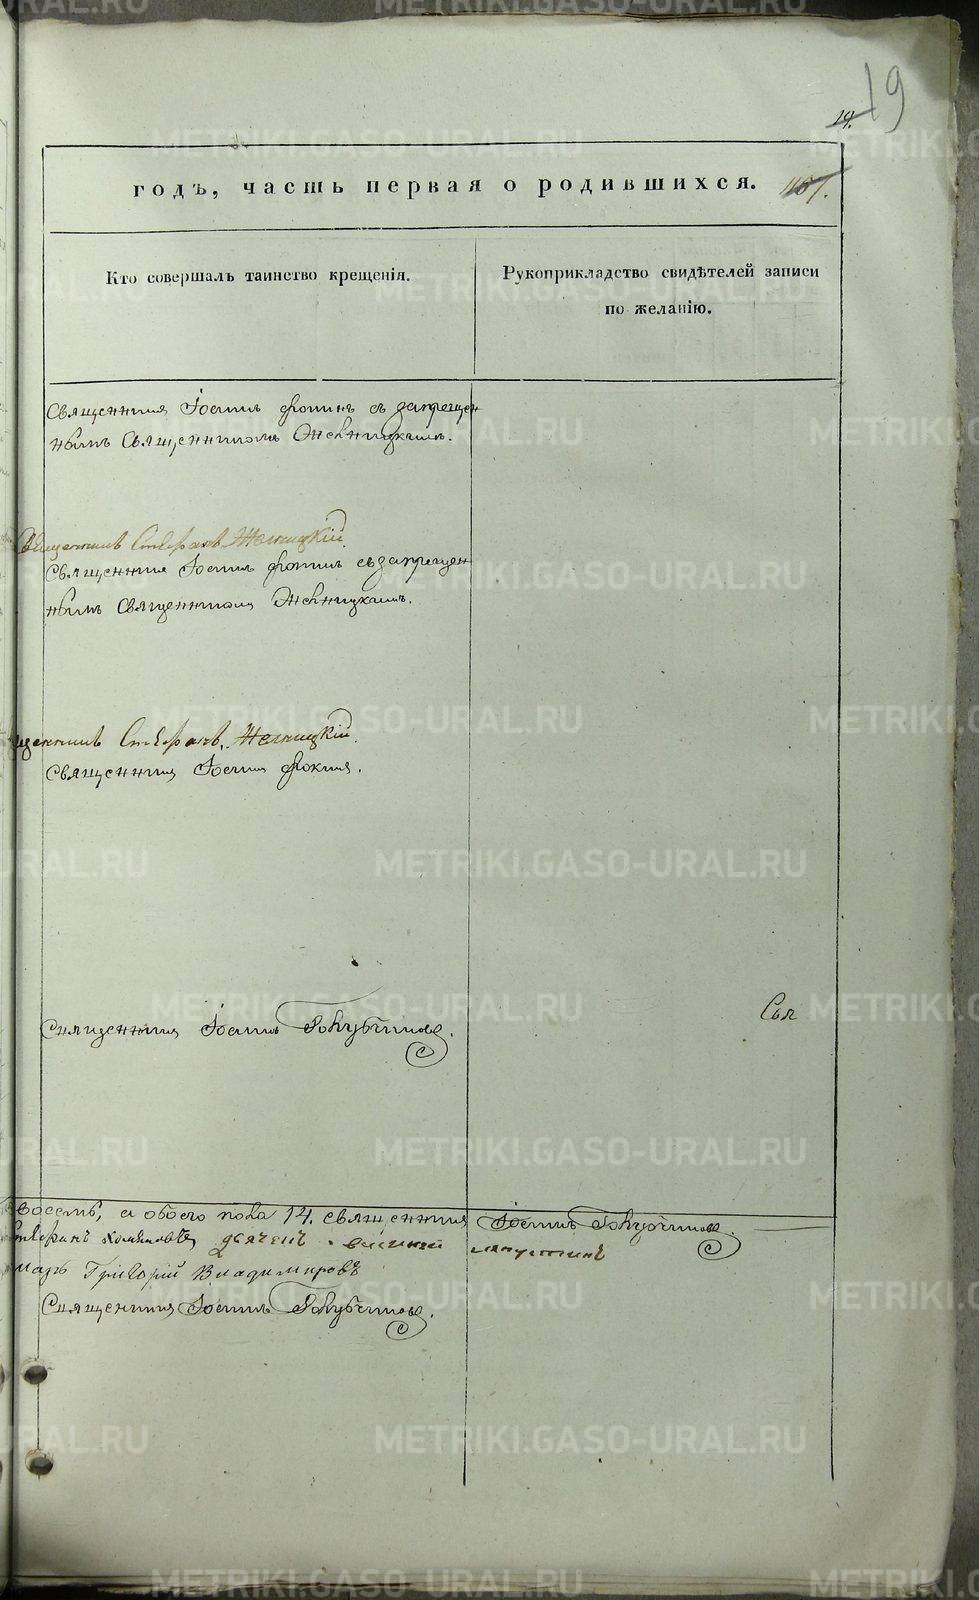 19
19.
годъ, часть первая о родившихся. 1157.
Кто совершалъ таинство крещенія.
Рукоприкладство свидѣтелей записи
по желанію.
Священникъ Іоаннъ Фокинъ съ запрещен
нымъ Священникомъ
Священникъ Стефанъ
Священникъ Іоаннъ Фокинъ съ запрещен
нымъ Священникомъ
щенникъ Стефанъ
Священникъ Іоаннъ Фокинъ.
Священникъ Іоаннъ Голубчиковъ.
восемь, а обоего пола 14. Священникъ Іоаннъ Голубчиковъ
Стефанъ дьячекъ
Григорій Владимировъ
Священникъ Іоаннъ Голубчиковъ.
METRIKI.GASO-URAL.RU